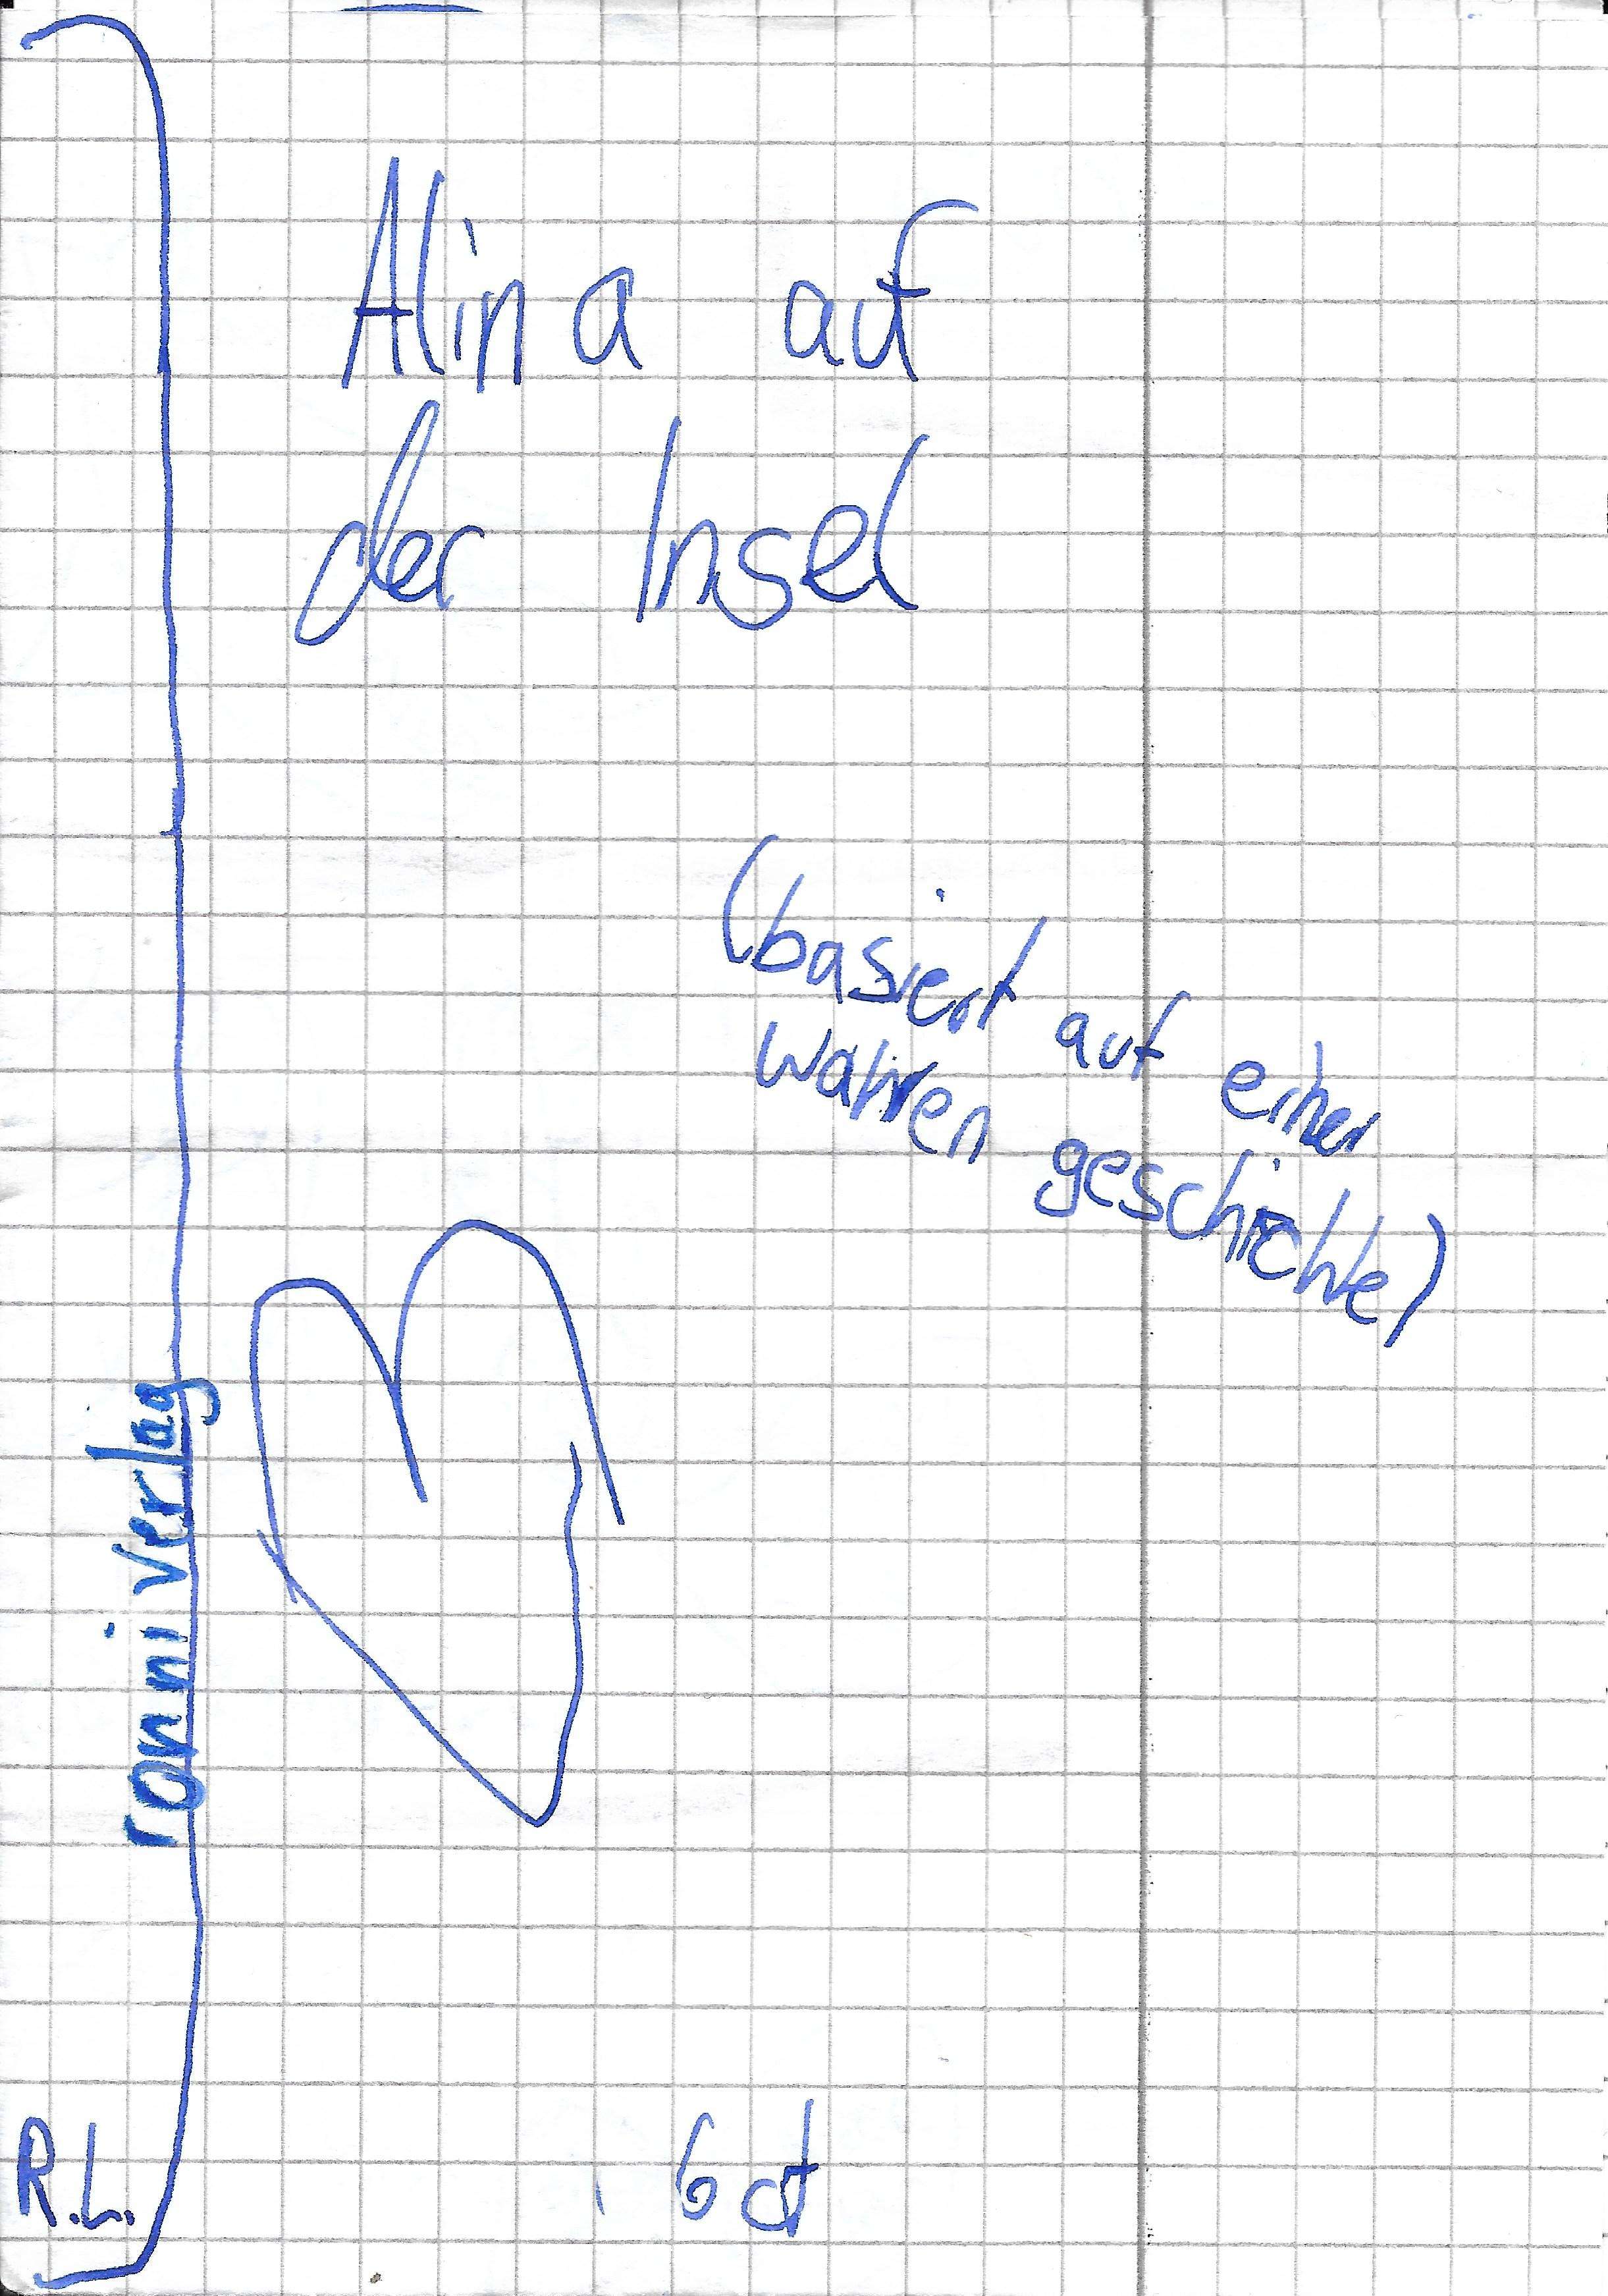 Alina auf
der Insel
(basiert auf einer
wahren geschichte)
ronni verlag
R.L.
6 ct